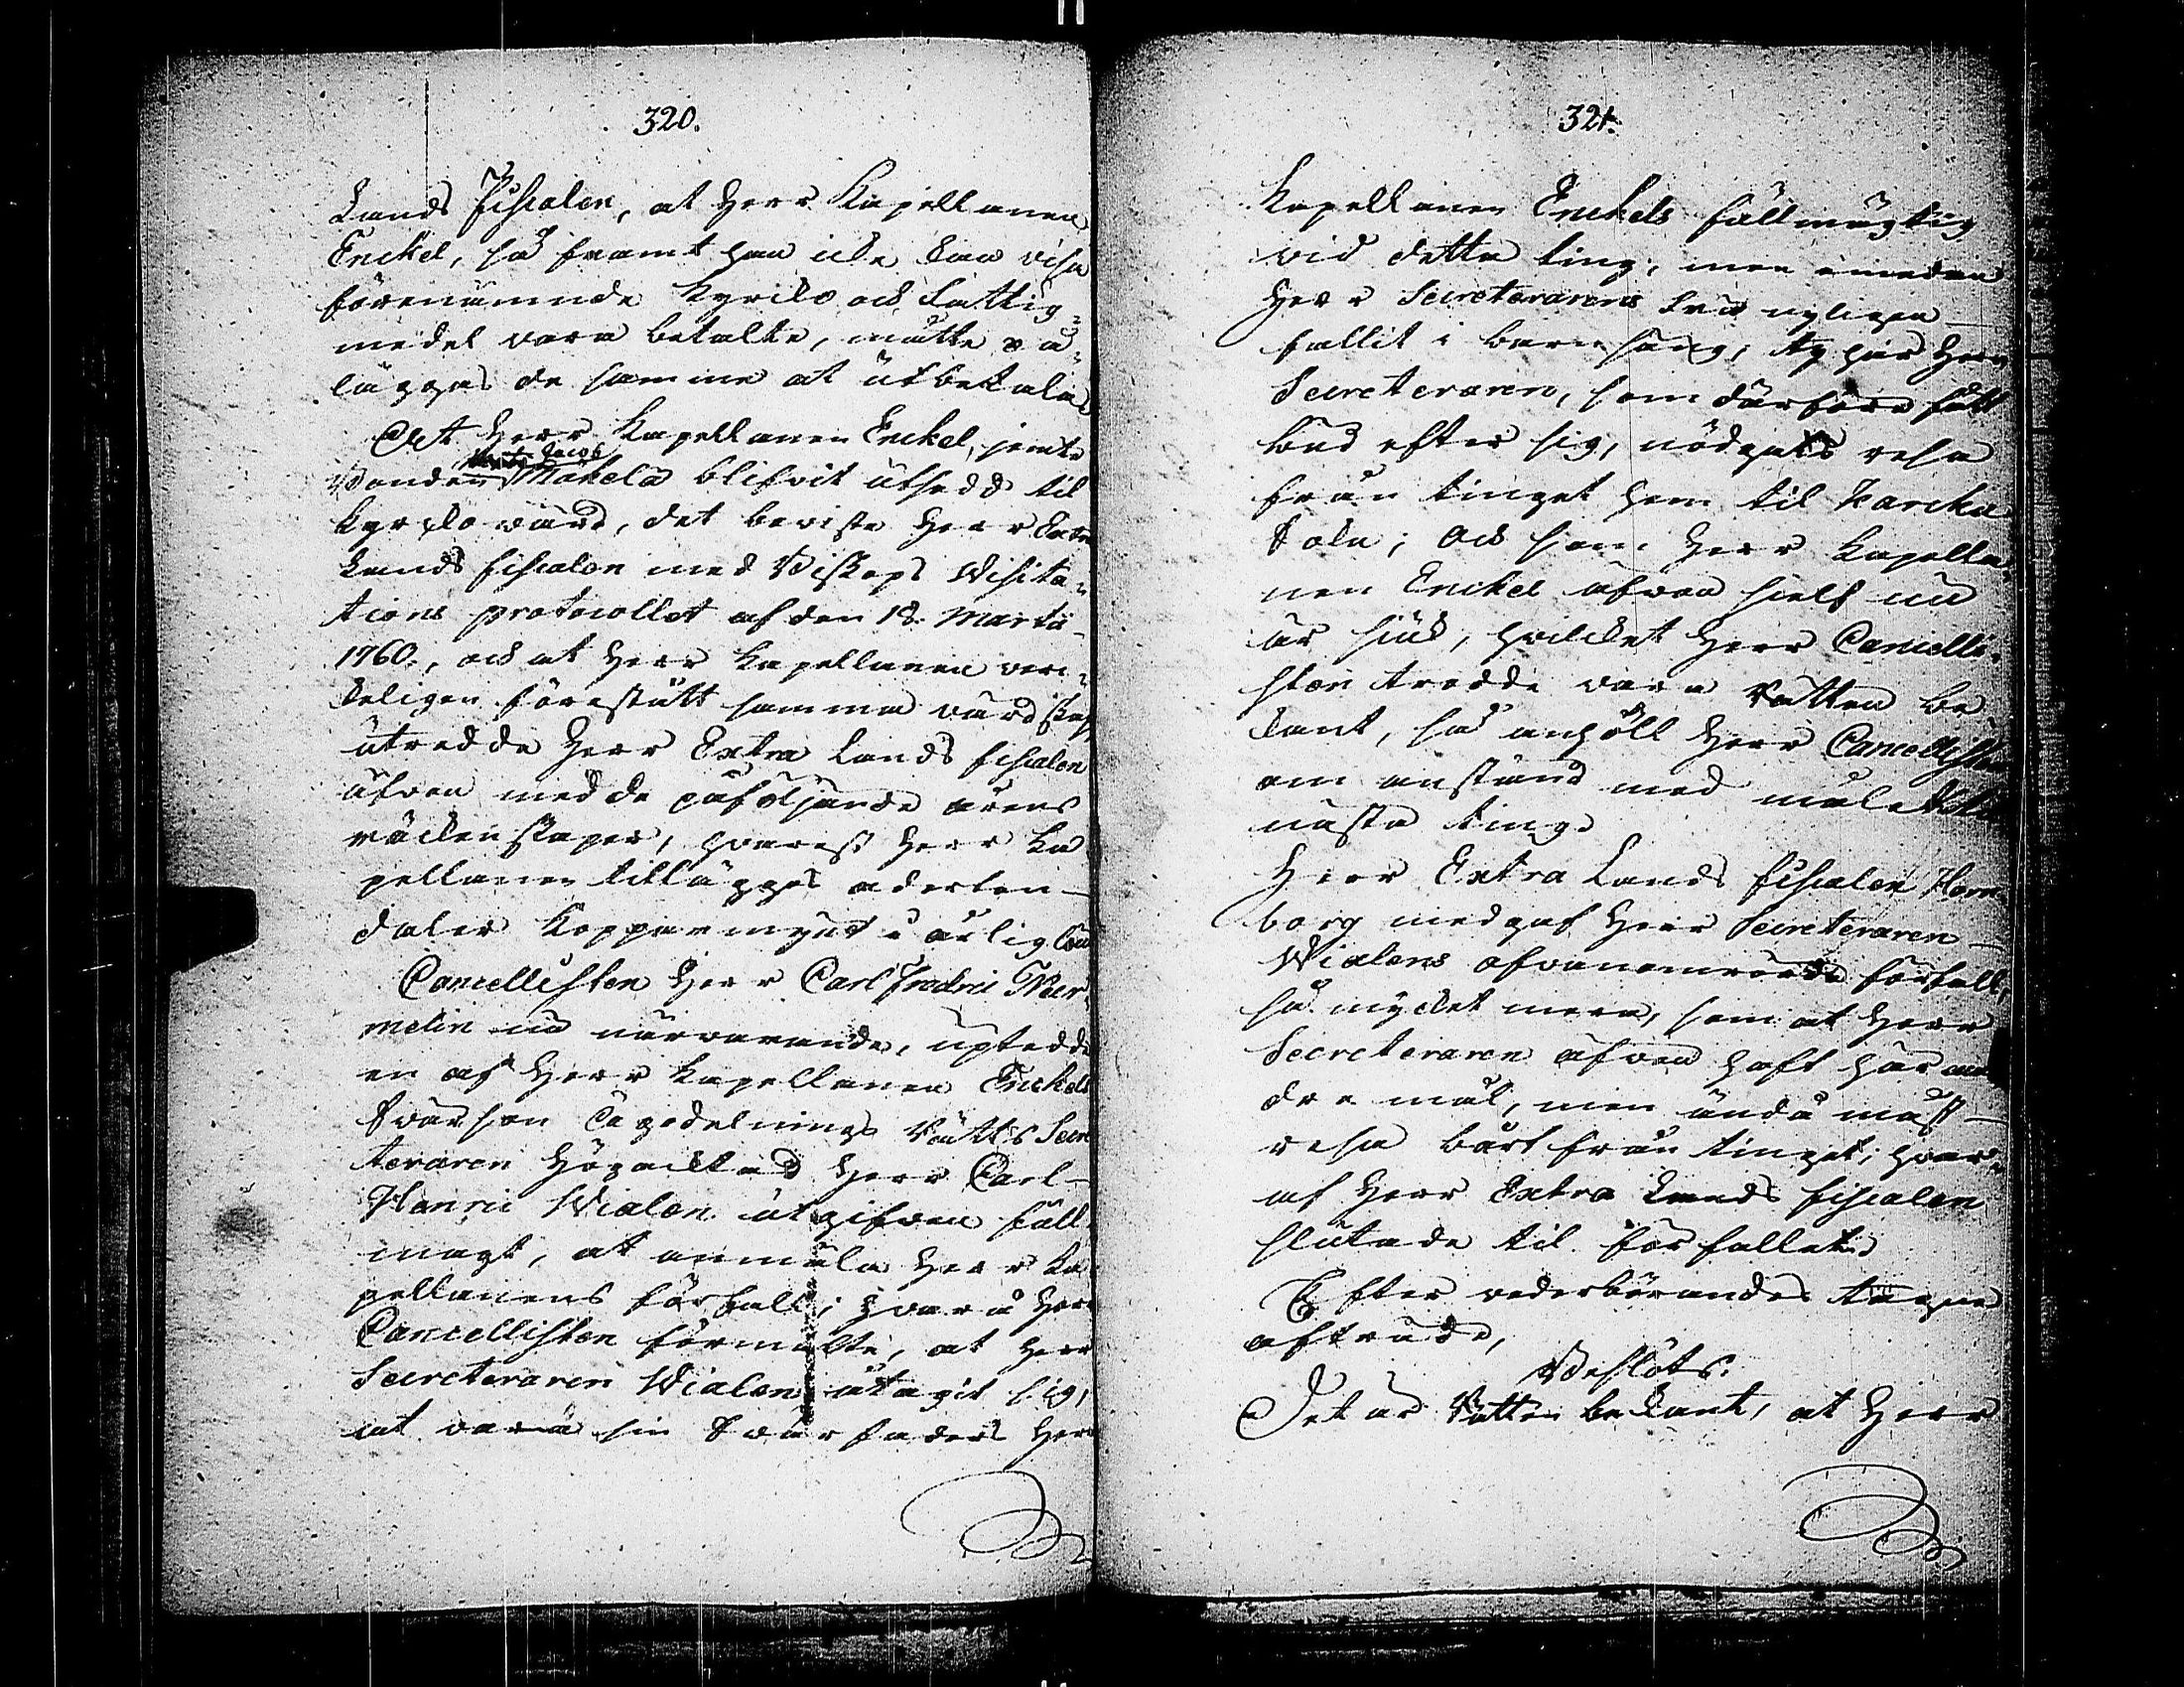 320.
Lands Fiscalen, at Herr Kapellanen
Enckel, så framt han icke kan visa
förenämnde Kyrcko och fattig=
medel vara betalte, måtte på=
läggas de samme at utbetala.
At Herr Kapellanen Enckel, jemte
Jacob
Bonden Mäkelä blifvit utsedd til
Kyrckovärd, det beviste Herr Extra
Lands fiscalen med Biskops Visita=
tions protocollet af den 18. Martii
1760., och at Herr Kapellanen verc=
keligen förestått samma värdskap
utredde Herr Extra Lands fiscalen
äfven med de påföljande årens
räckenskaper, hvarest Herr Ka
pellanen tillägges aderton
daler Kopparmynt i årlig lön
Cancellisten Herr Carl Fredric
melin nu närvarande, uptedde
en af Herr Kapellanen Enckels
Svärson Lagodelnings Rätts Secre
teraren Högacktad Herr Carl
Henric Wialen utgifven full
magt, at anmäla Herr Ka
pellanens förfall; hvarå Herr
Cancellisten förmälte, at Herr
Secreteraren Wialen åtagit sig,
at vara sin Svärfaders Herr
321.
Kapellanen Enckels fullmägtig
vid detta ting; men emedan
Herr Secreterarens fru nyligen
fallit i barnsäng, ty har Herr
Secreteraren, som därföre fått
bud efter sig, nödgats resa
från tinget hem til Karcku
Sokn; Och som Herr Kapella=
nen Enckel äfven sielf nu
är siuk, hvilcket Herr Cancelli=
sten trodde vara Rätten be
kant, så anhöll Herr Cancellisten
om anstånd med målet til
nästa ting.
Herr Extra Lands fiscalen Horn
borg medgaf Herr Secreteraren
Wialens ofvananrörde förfall,
så mycket mera, som at Herr
Secreteraren äfven haft här an
dra mål, men ändå måst
resa bårt från tinget; hvar=
af Herr Extra Lands fiscalen
slutade til förfallet.
Efter vederbörandes tagne
afträde,
Beslöts:
Det är Rätten bekant, at Herr